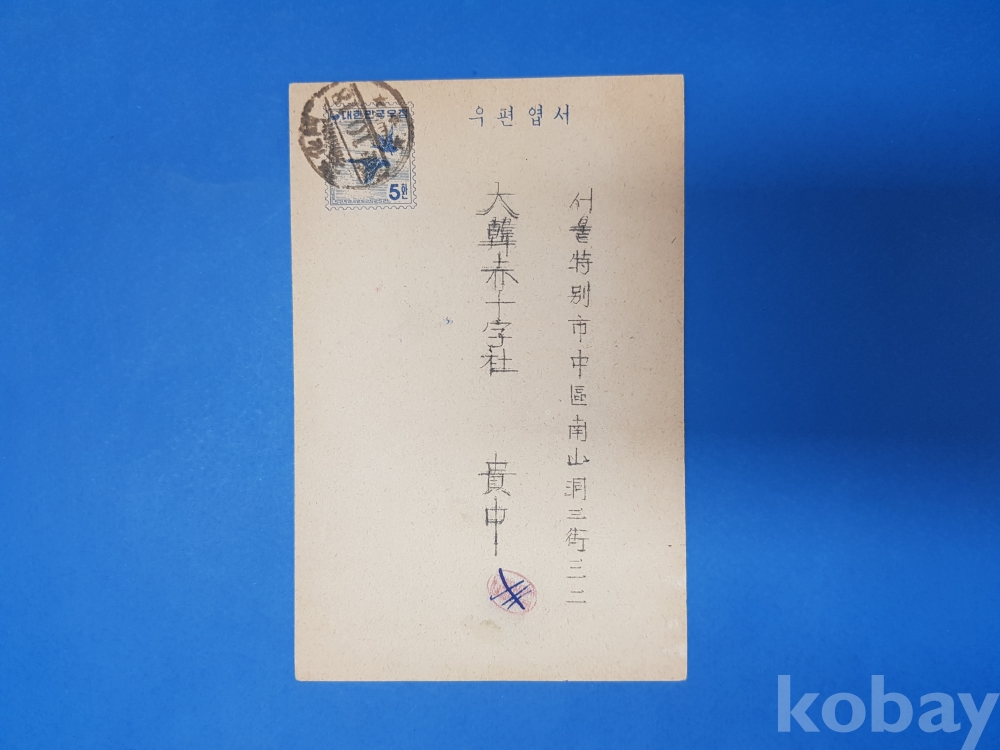 우편엽서
대한민국우표
5한
서울特別市中區南山洞三街三二
大韓赤十字社 貴中
kobay